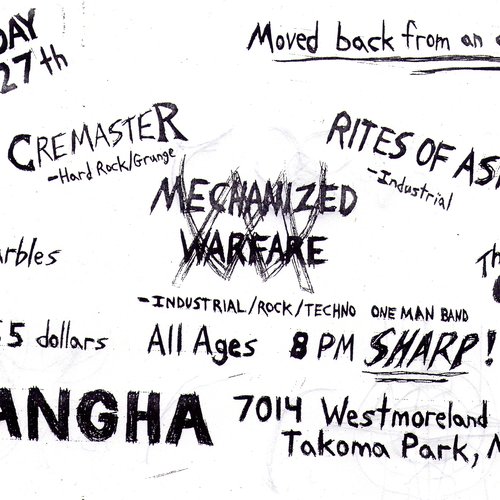 DAY
27th
Moved back from an
CREMASTER
-Hard Rock/Grunge
RITES OF AS
-Industrial
MECHANIZED
WARFARE
arbles
Th
-INDUSTRIAL/ROCK/TECHNO ONE MAN BAND
5 dollars All Ages 8 PM SHARP!
ANGHA 7014 Westmoreland
Takoma Park,